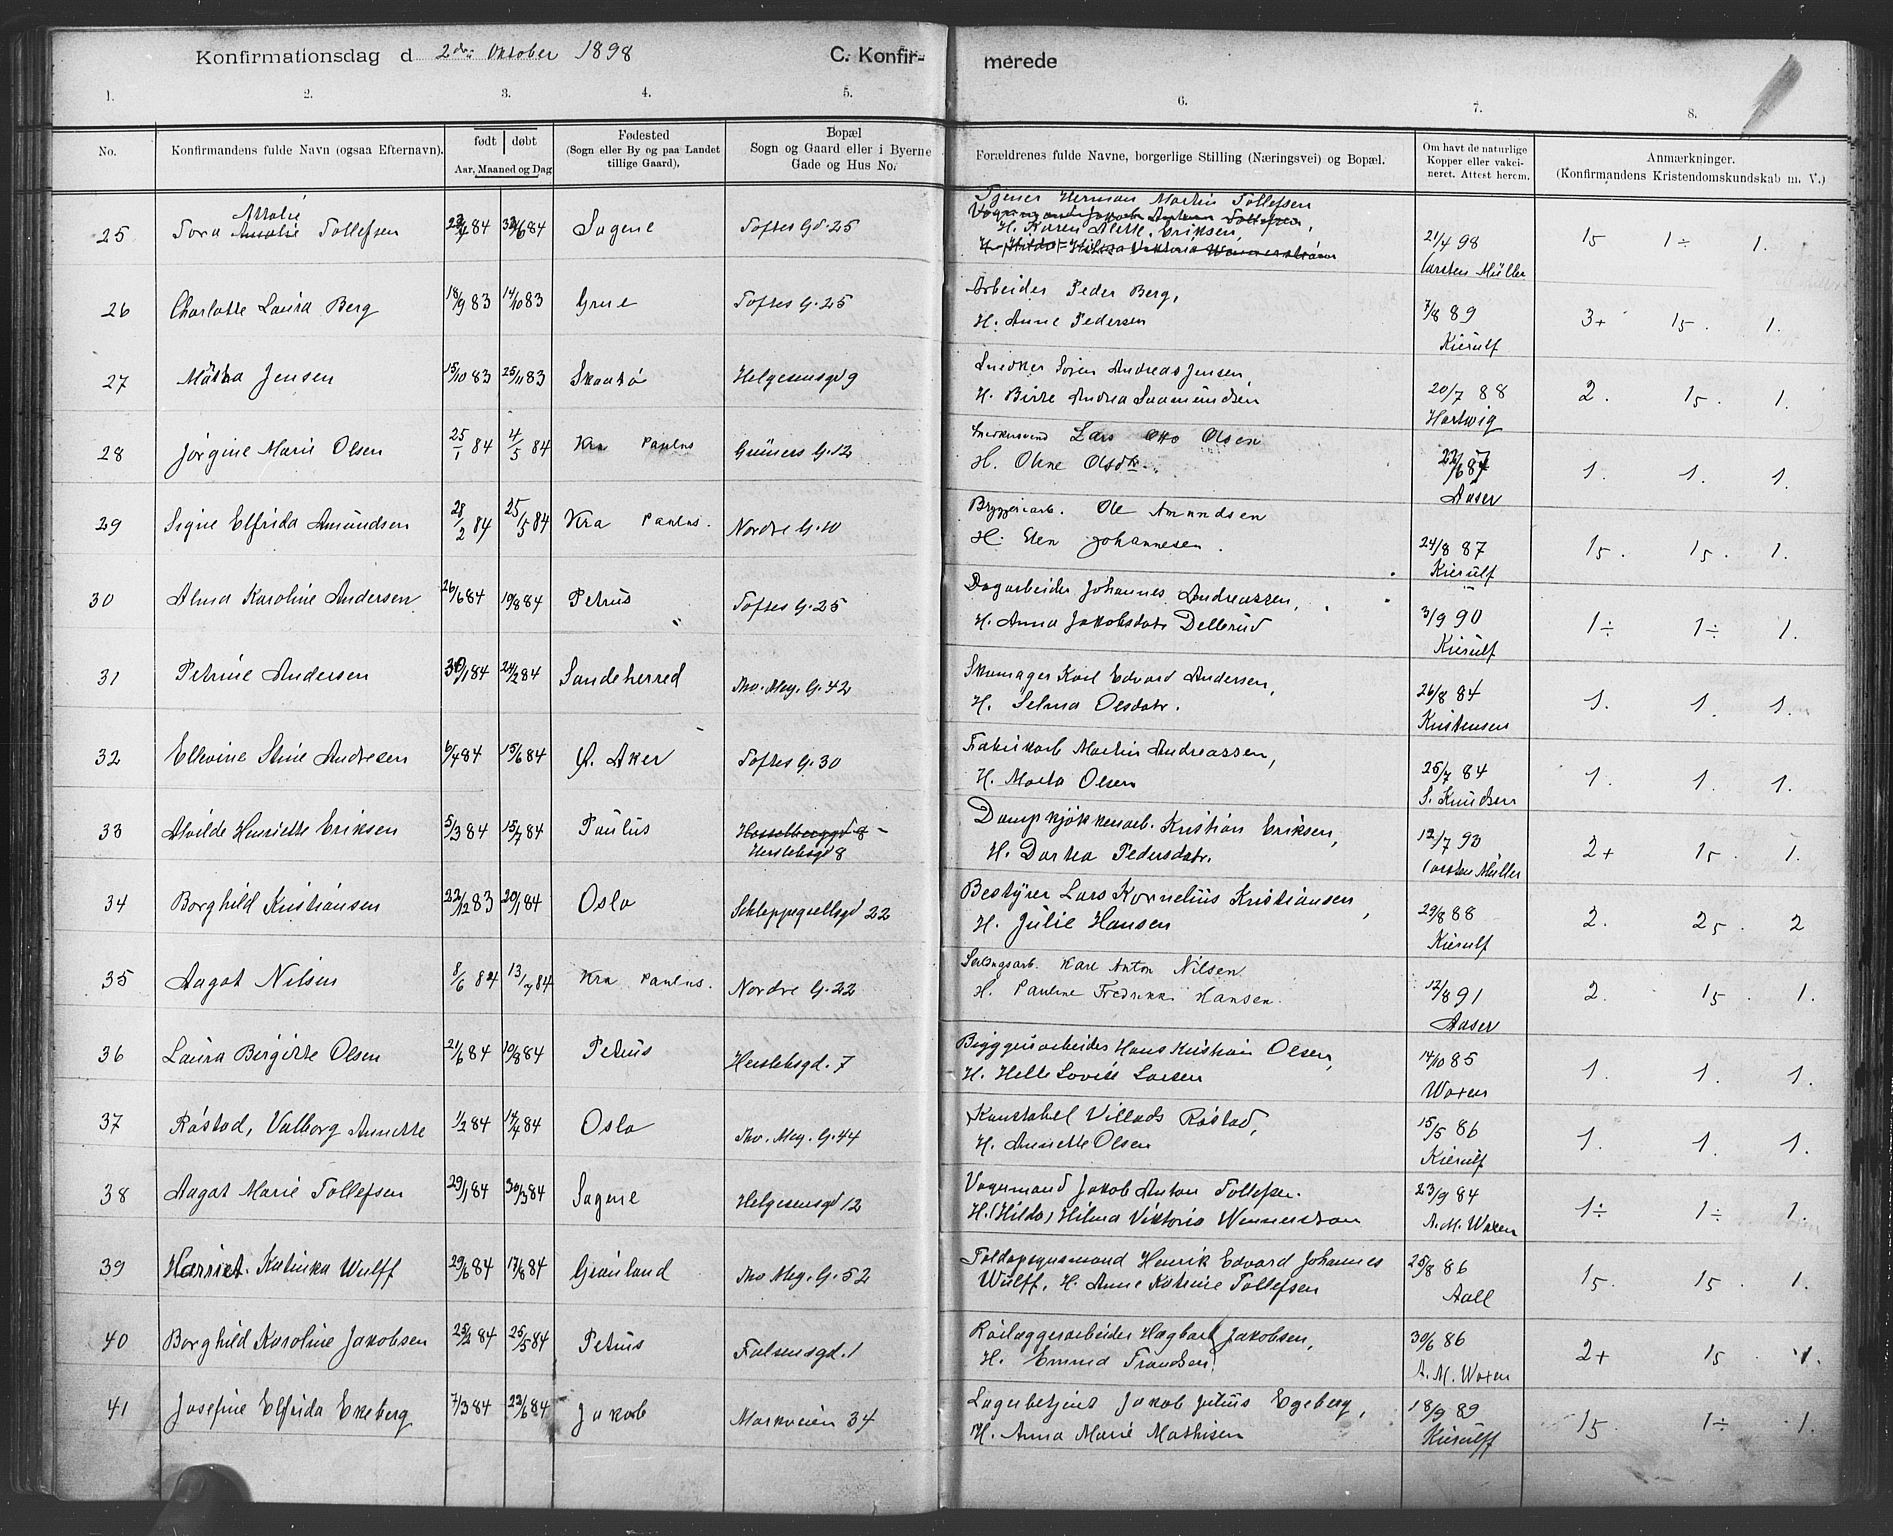 Konfirmationsdag d 2den Oktober 1898 C. Konfir- merede
1. 2. 3. 4. 5. 6. 7. 8.
No. Konfirmandens fulde Navn (ogsaa Efternavn). født døbt Aar, Maaned og Dag Fødested (Sogn eller By og paa Landet tillige Gaard). Bopæl Sogn og Gaard eller i Byerne Gade og Hus No. Forældrenes fulde Navne, borgerlige Stilling (Næringsvei) og Bopæl. Om havt de naturlige Kopper eller vakcineret. Attest herom. Anmærkninger. (Konfirmandens Kristendomskundskab m. V.)
25 Tora Amalie Tollefsen 84 84 Sagene Toftes Gd. 25 Herman Martin Tollefsen
H. Karen Alette Eriksen, 21/4 98 15 1÷ 1.
Hilma Viktoria Carsten Müller
26 Charlotte Laura Berg 18/9 83 14/10 83 Grue Toftes G. 25 Arbeider Peder Berg,
H. Anne Pedersen 7/8 89 Kierulf 3+ 15. 1.
27 Jensen 15/10 83 25/11 83 Skaatø Helgesensgd 9 Snedker Søren Andreas Jensen,
H. Birte Andrea Saamundsen 20/7 88 Hartwig 2. 15. 1.
28 Jørgine Marie Olsen 25/1 84 4/5 84 Kra Paulus Grüners G. 12 Snedkersvend Lars Otto Olsen
H. Oline Olsdtr. 87 Aaser 1. 1. 1.
29 Signe Elfrida Amundsen 28/2 84 25/5 84 Kra Paulus. Nordre G. 10 Bryggeriarb. Ole Amundsen
H. Elen Johannesen. 24/8 87 Kierulf 15. 15. 1.
30 Alma Karoline Andersen 26/6 84 10/8 84 Petrus Toftes G. 25 Dagarbeider Johannes Andreassen,
H. Anna Jakobsdatr Dellerud 3/9 90 Kierulf 1÷ 1÷ 1.
31 Petrine Andersen 84 24/2 84 Sandeherred Thv. Mey. G. 42 Skomager Karl Edvard Andersen,
H. Selma Olsdatr. 26/8 84 Kristensen 1. 1. 1.
32 Ellevine Stine Andresen 6/4 84 15/6 84 Ø. Aker Toftes G. 30 Fabrikarb Martin Andreassen,
H. Marta Olsen 25/7 84 S. Knudsen 1. 1. 1.
33 Alvilde Henriette Eriksen 5/3 84 15/7 84 Paulus Hasselberggd 8 - Dampkjøkkenarb. Kristian Eriksen,
Herslebsgd 8 H. Dortea Pedersdatr. 12/7 93 Carsten Müller 2+ 15. 1.
34 Borghild Kristiansen 22/12 83 20/1 84 Oslo Schleppegrellsgd 22 Bestyrer Lars Kornelius Kristiansen,
H. Julie Hansen 29/8 88 Kierulf 2. 25. 2
35 Aagot Nilsen 8/6 84 13/7 84 Kra Paulus. Nordre G. 22 Karl Anton Nilsen
H. Pauline Fredrikke Hansen. 12/8 91 Aaser 2. 15. 1.
36 Laura Bergitte Olsen 21/6 84 10/8 84 Petrus Herslebsgd. 7 Bryggeriarbeider Hans Kristian Olsen,
H. Helle Lovise Larsen 14/10 85 Woxen 1. 1. 1.
37 Røstad, Valborg Annette 1/2 84 14/4 84 Oslo Thv. Mey. G. 44 Konstabel Villads Røstad,
H. Annette Olsen 15/5 86 Kierulf 1. 1. 1.
38 Aagot Marie Tollefsen 29/1 84 30/3 84 Sagene Helgesensgd 12 Vognmand Jakob Anton Tollefsen.
H. (Hilda) Hilma Viktoria Wennerstrøm 23/9 84 A. M. Woxen 1÷ 1÷ 1.
39 Harriet Katinka Wulff 29/6 84 17/8 84 Grønland Thv Mey. G. 52 Toldopsynsmand Henrik Edvard Johannes
Wulff, H. Anne Katrine Tollefsen 25/8 86 Aall 15. 15. 1.
40 Borghild Karoline Jakobsen 25/2 84 25/5 84 Petrus Falsensgd. 1 Rørlæggerarbeider Hagbart Jakobsen,
H. Emma Frandsen. 30/6 86 A. M. Woxen 2+ 15. 1.
41 Josefine Elfrida Ekeberg 7/3 84 22/6 84 Jakob Markveien 34 Lagerbetjent Jakob Julius Egeberg,
H. Anna Marie Mathisen 18/9 89 Kierulff 15. 1÷ 1.